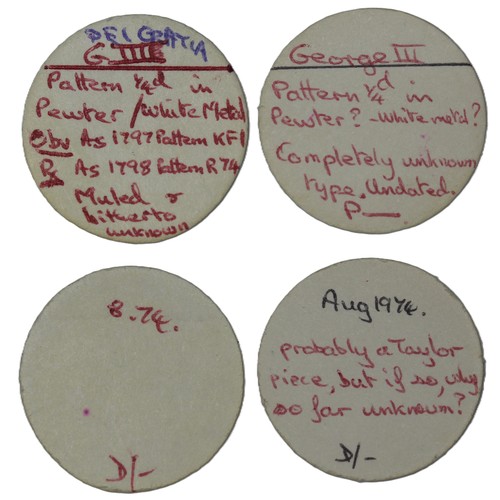 DEI GRATIA
G III
Pattern ¼d in
Pewter/White Metal
Obv As 1797 Pattern KF1
R As 1798 Pattern R 74
Muled &
hitherto
unknown
George III
Pattern ¼d in
Pewter? - white met'd?
Completely unknown
type. Undated.
P—
8.74.
D/-
Aug 1974.
probably a Taylor
piece, but if so, why
so far unknown?
D/-